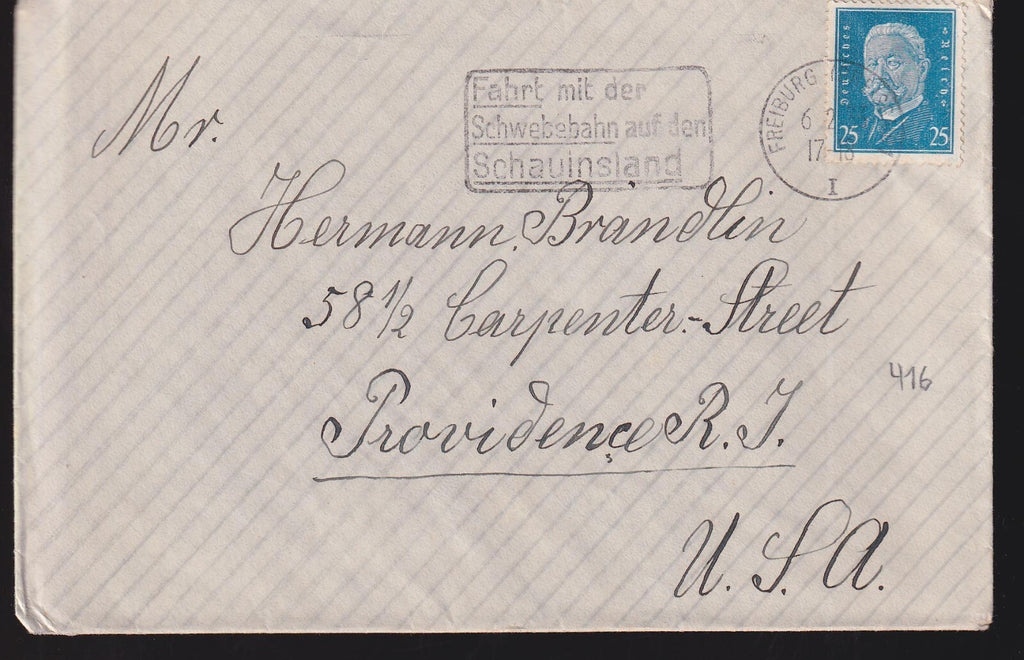 Deutsches Reich
25 25
FREIBURG
6 2
17-18
I
Fahrt mit der
Schwebebahn auf den
Schauinsland
Mr.
Hermann Brändlin
58 1/2 Carpenter-Street
Providence R. I.
U. S. A.
416